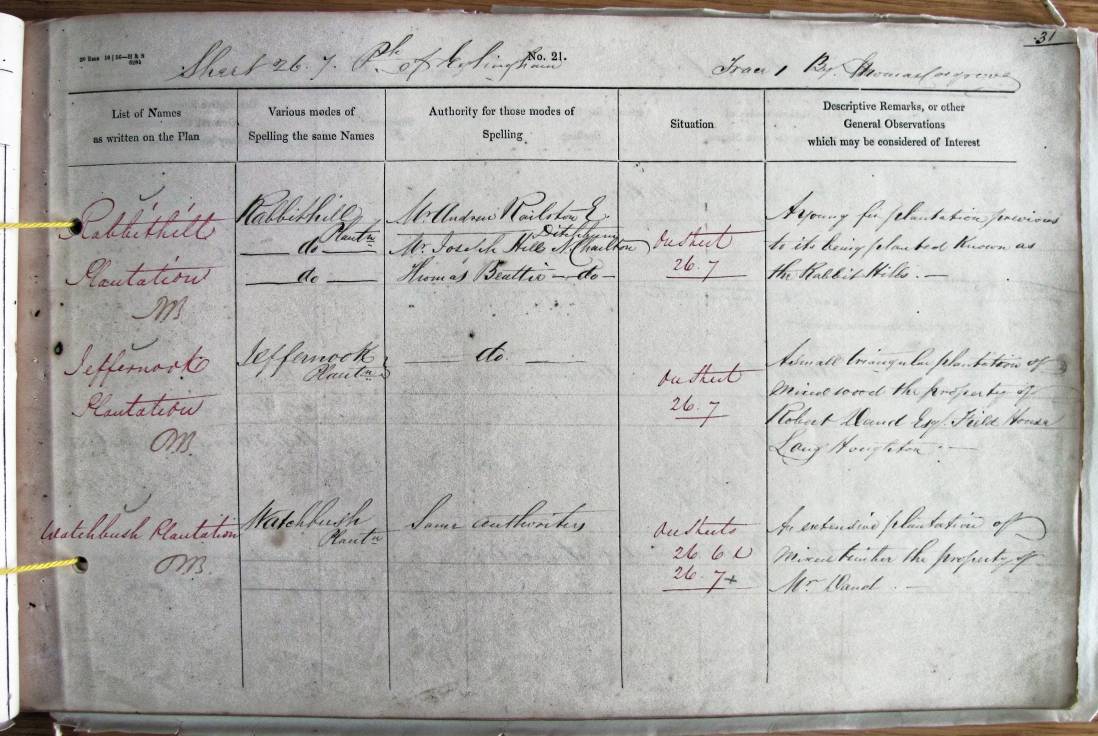 31
Sheet 26. 7. Ph of Eglingham No. 21. Trace 1 By Thomas Cosgrove
List of Names
as written on the Plan
Various modes of
Spelling the same Names
Authority for those modes of
Spelling
Situation
Descriptive Remarks, or other
General Observations
which may be considered of Interest
Rabbithill
Plantation
Rabbithill
Plantn
do
do
Mr Andrew Railston E.
Ditchburn
Mr. Joseph Hill N. Charlton
Thomas Beattie do
On Sheet
26. 7
A young fir plantation previous
to its being planted Known as
the Rabbit Hills.
Jeffernook
Plantation
Jeffernook
Plantn
do
On Sheet
26. 7
A small triangular plantation of
mixed wood the property of
Robert Dand Esq. Field House
Long Houghton
Watchbush Plantation
Watchbush
Plantn
Same authorities
On Sheets
26 6
26 7 +
An extensive plantation of
mixed timber the property of
Mr Dand